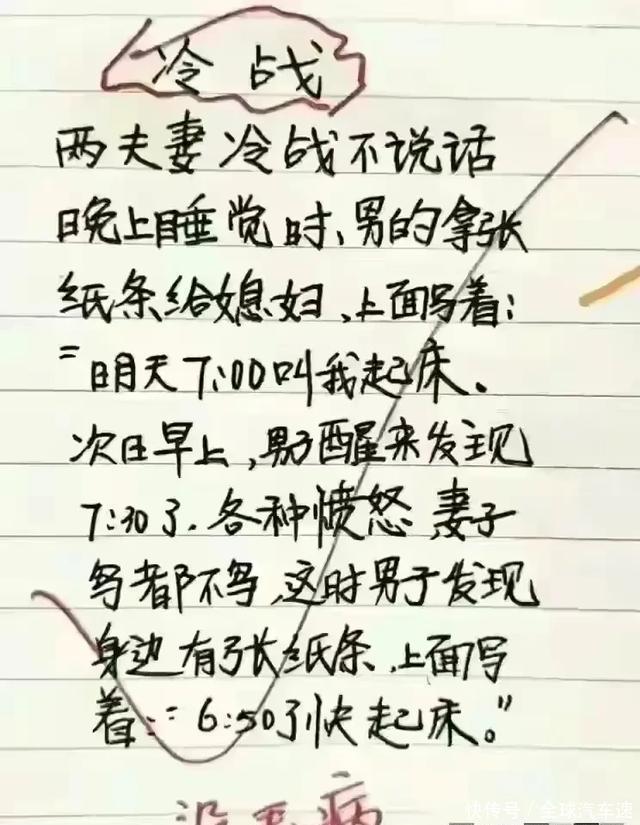 冷战
两夫妻冷战不说话
晚上睡觉时、男的拿张
纸条给媳妇、上面写着:
"明天7:00叫我起床、
次日早上,男子醒来发现
7:30了.各种愤怒 妻子
鸟都不鸟,这时男子发现
身边有张纸条,上面写
着:"6:50了快起床。"
没毛病
快传号/全球汽车速